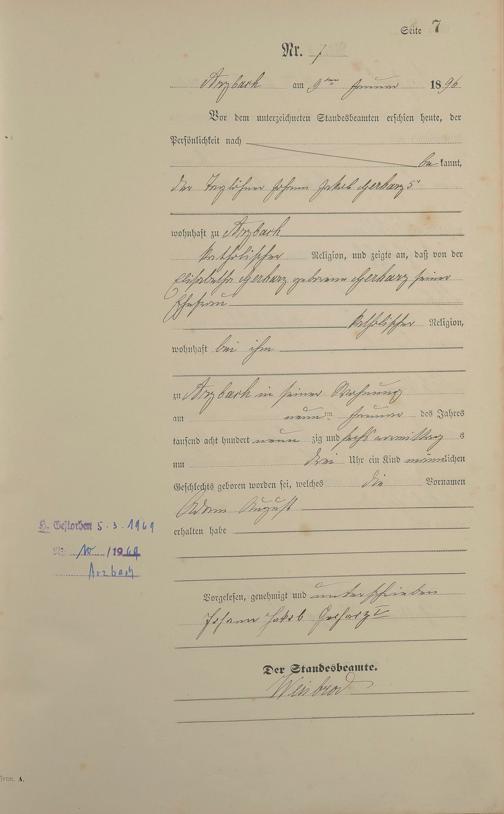 Seite 7
Nr. 7
Arzbach am 9ten Januar 1896
Vor dem unterzeichneten Standesbeamten erschien heute, der
Persönlichkeit nach
be kannt,
der Taglöhner Johann Jakob Gerharz 5r
wohnhaft zu Arzbach
katholischer Religion, und zeigte an, daß von der
Elisabetha Gerharz geborene Gerharz seiner
Ehefrau
katholischer Religion,
wohnhaft bei ihm
zu Arzbach in seiner Wohnung
am neunten Januar des Jahres
tausend acht hundert neun zig und sechs vormittag s
um drei Uhr ein Kind männlichen
Geschlechts geboren worden sei, welches die Vornamen
Adam August
erhalten habe
H. Gestorben 5.3.1969
Nr. 10 /1969
Arzbach
Vorgelesen, genehmigt und unterschrieben
Johann Jakob Gerharz V
Der Standesbeamte.
Weisbrod
Form. A.